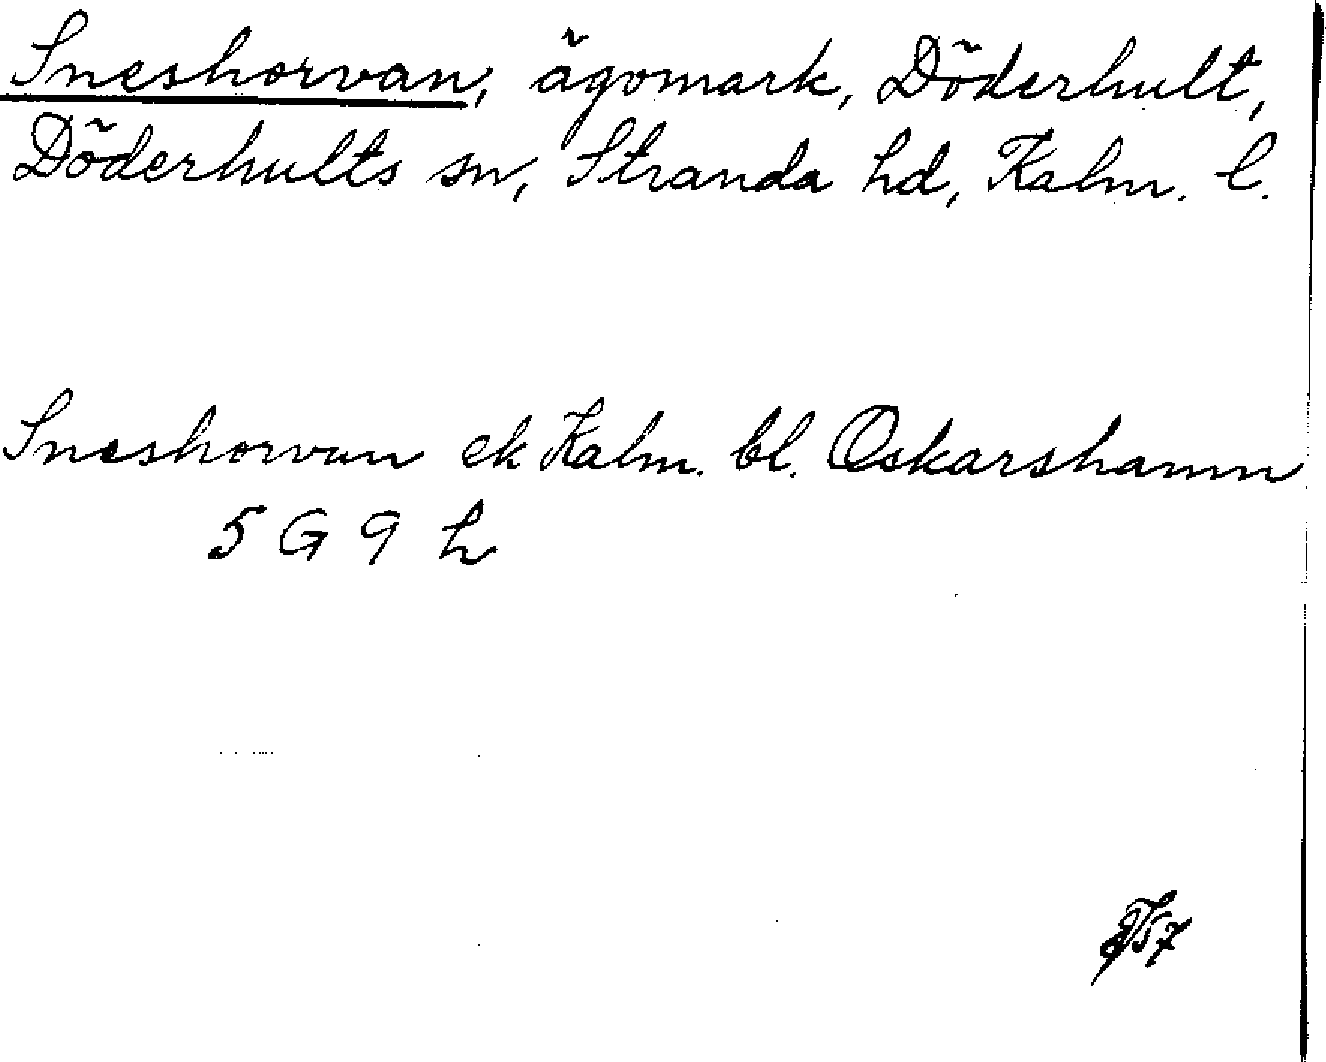 Sneshorvan, ägomark, Döderhult,
Döderhults sn, Stranda hd, Kalm. l.
Sneshorvan ek Kalm. bl. Oskarshamn
5 G 9 h